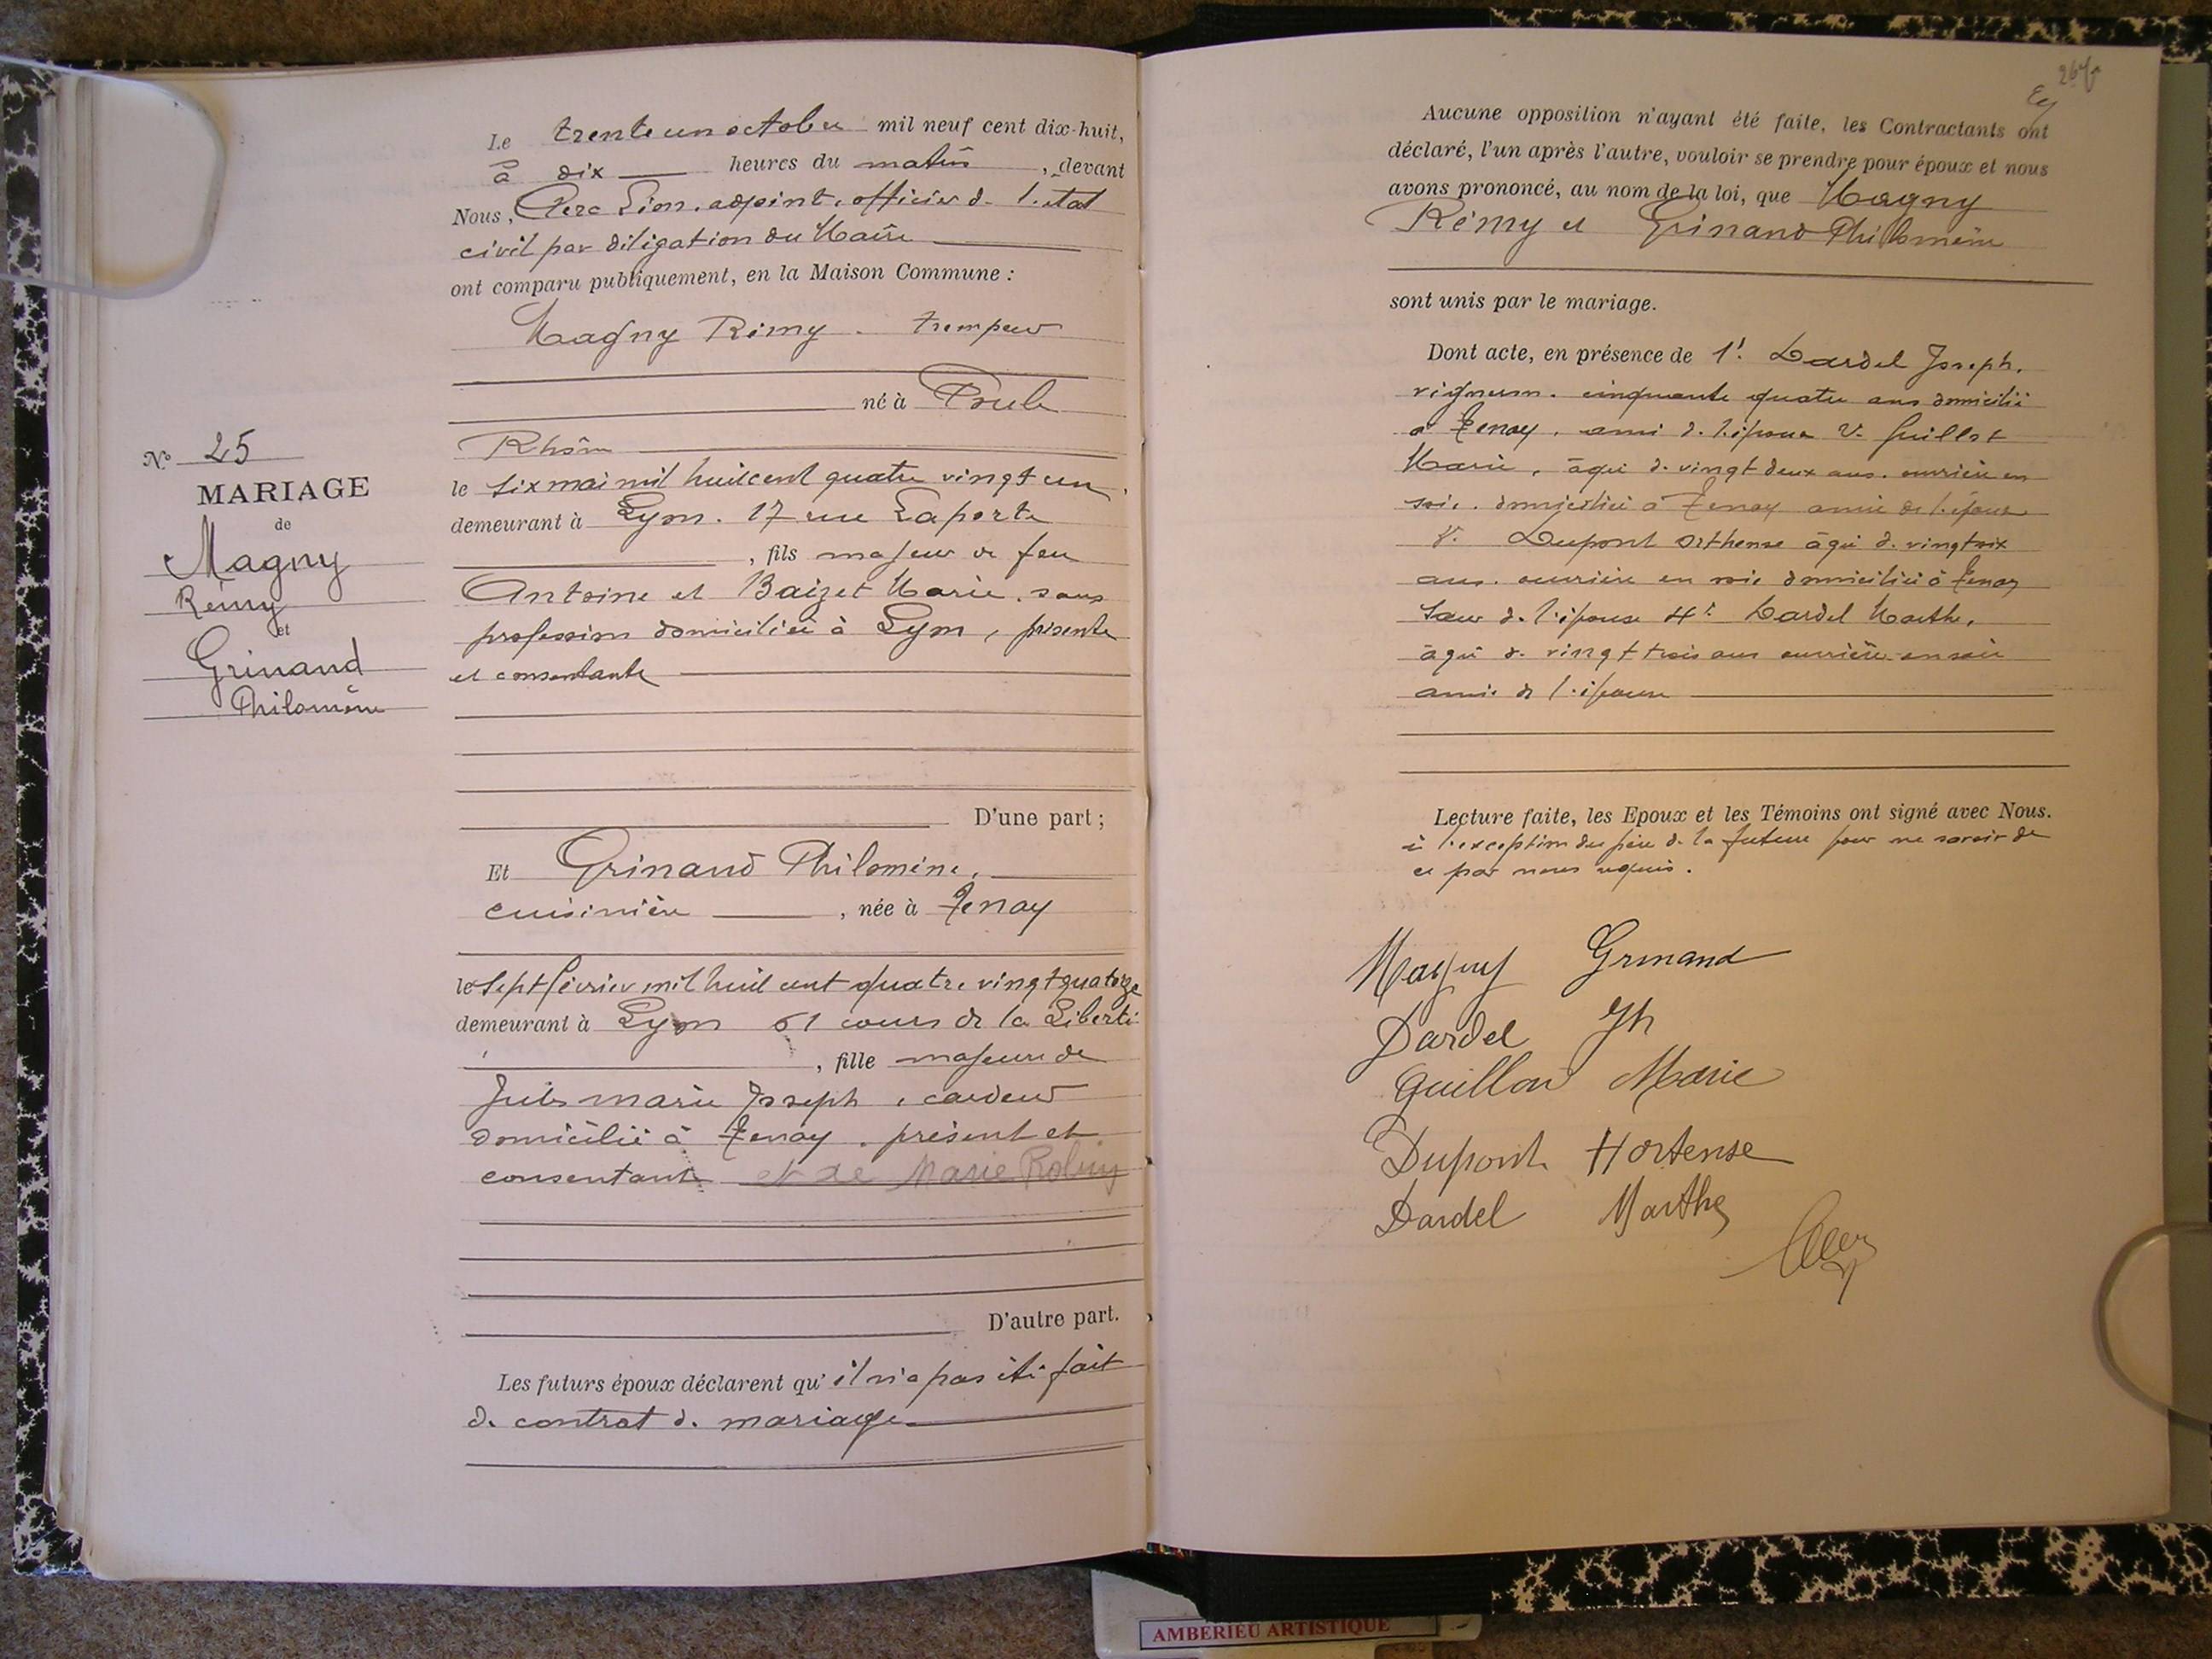 N° 25
MARIAGE
de
Magny
Rémy
et
Grinand
Philomène
Le trente un octobre mil neuf cent dix-huit,
à dix heures du matin, devant
Nous, Clerc Léon, adjoint, officier de l'état
civil par déligation du Maire
ont comparu publiquement, en la Maison Commune :
Magny Rémy. trempeur
né à Poule
Rhône
le six mai mil huit cent quatre vingt un,
demeurant à Lyon. 17 rue Laporte
, fils majeur de feu
Antoine et Baizet Marie, sans
profession domiciliée à Lyon, présente
et consentante
D'une part ;
Et Grinand Philomène,
cuisinière, née à Tenay
le sept février mil huit cent quatre vingt quatorze
demeurant à Lyon 61 cours de la Liberté
, fille majeure de
Jules marie Joseph, cardeur
domicilié à Tenay, présent et
consentant et de Marie
D'autre part.
Les futurs époux déclarent qu'il n'a pas été fait
de contrat de mariage
267
Aucune opposition n'ayant été faite, les Contractants ont
déclaré, l'un après l'autre, vouloir se prendre pour époux et nous
avons prononcé, au nom de la loi, que Magny
Rémy et Grinand Philomène
sont unis par le mariage.
Dont acte, en présence de 1° Dardel Joseph,
vigneron. cinquante quatre ans domicilié
à Tenay, ami de l'épouse 2° Guillot
Marie, âgée de vingt deux ans. ouvrière en
soie. domiciliée à Tenay amie de l'épouse
3° Dupont Orthense âgée de vingt six
ans. ouvrière en soie domiciliée à Tenay
sœur de l'épouse 4° Dardel Marthe,
âgée de vingt trois ans ouvrière en soie
amie de l'épouse
Lecture faite, les Epoux et les Témoins ont signé avec Nous.
à l'exception du père de la future pour ne savoir de
ce par nous requis.
Magny Grinand
Dardel Jh
Guillon Marie
Dupont Hortense
Dardel Marthe
Clerc
AMBERIEU ARTISTIQUE